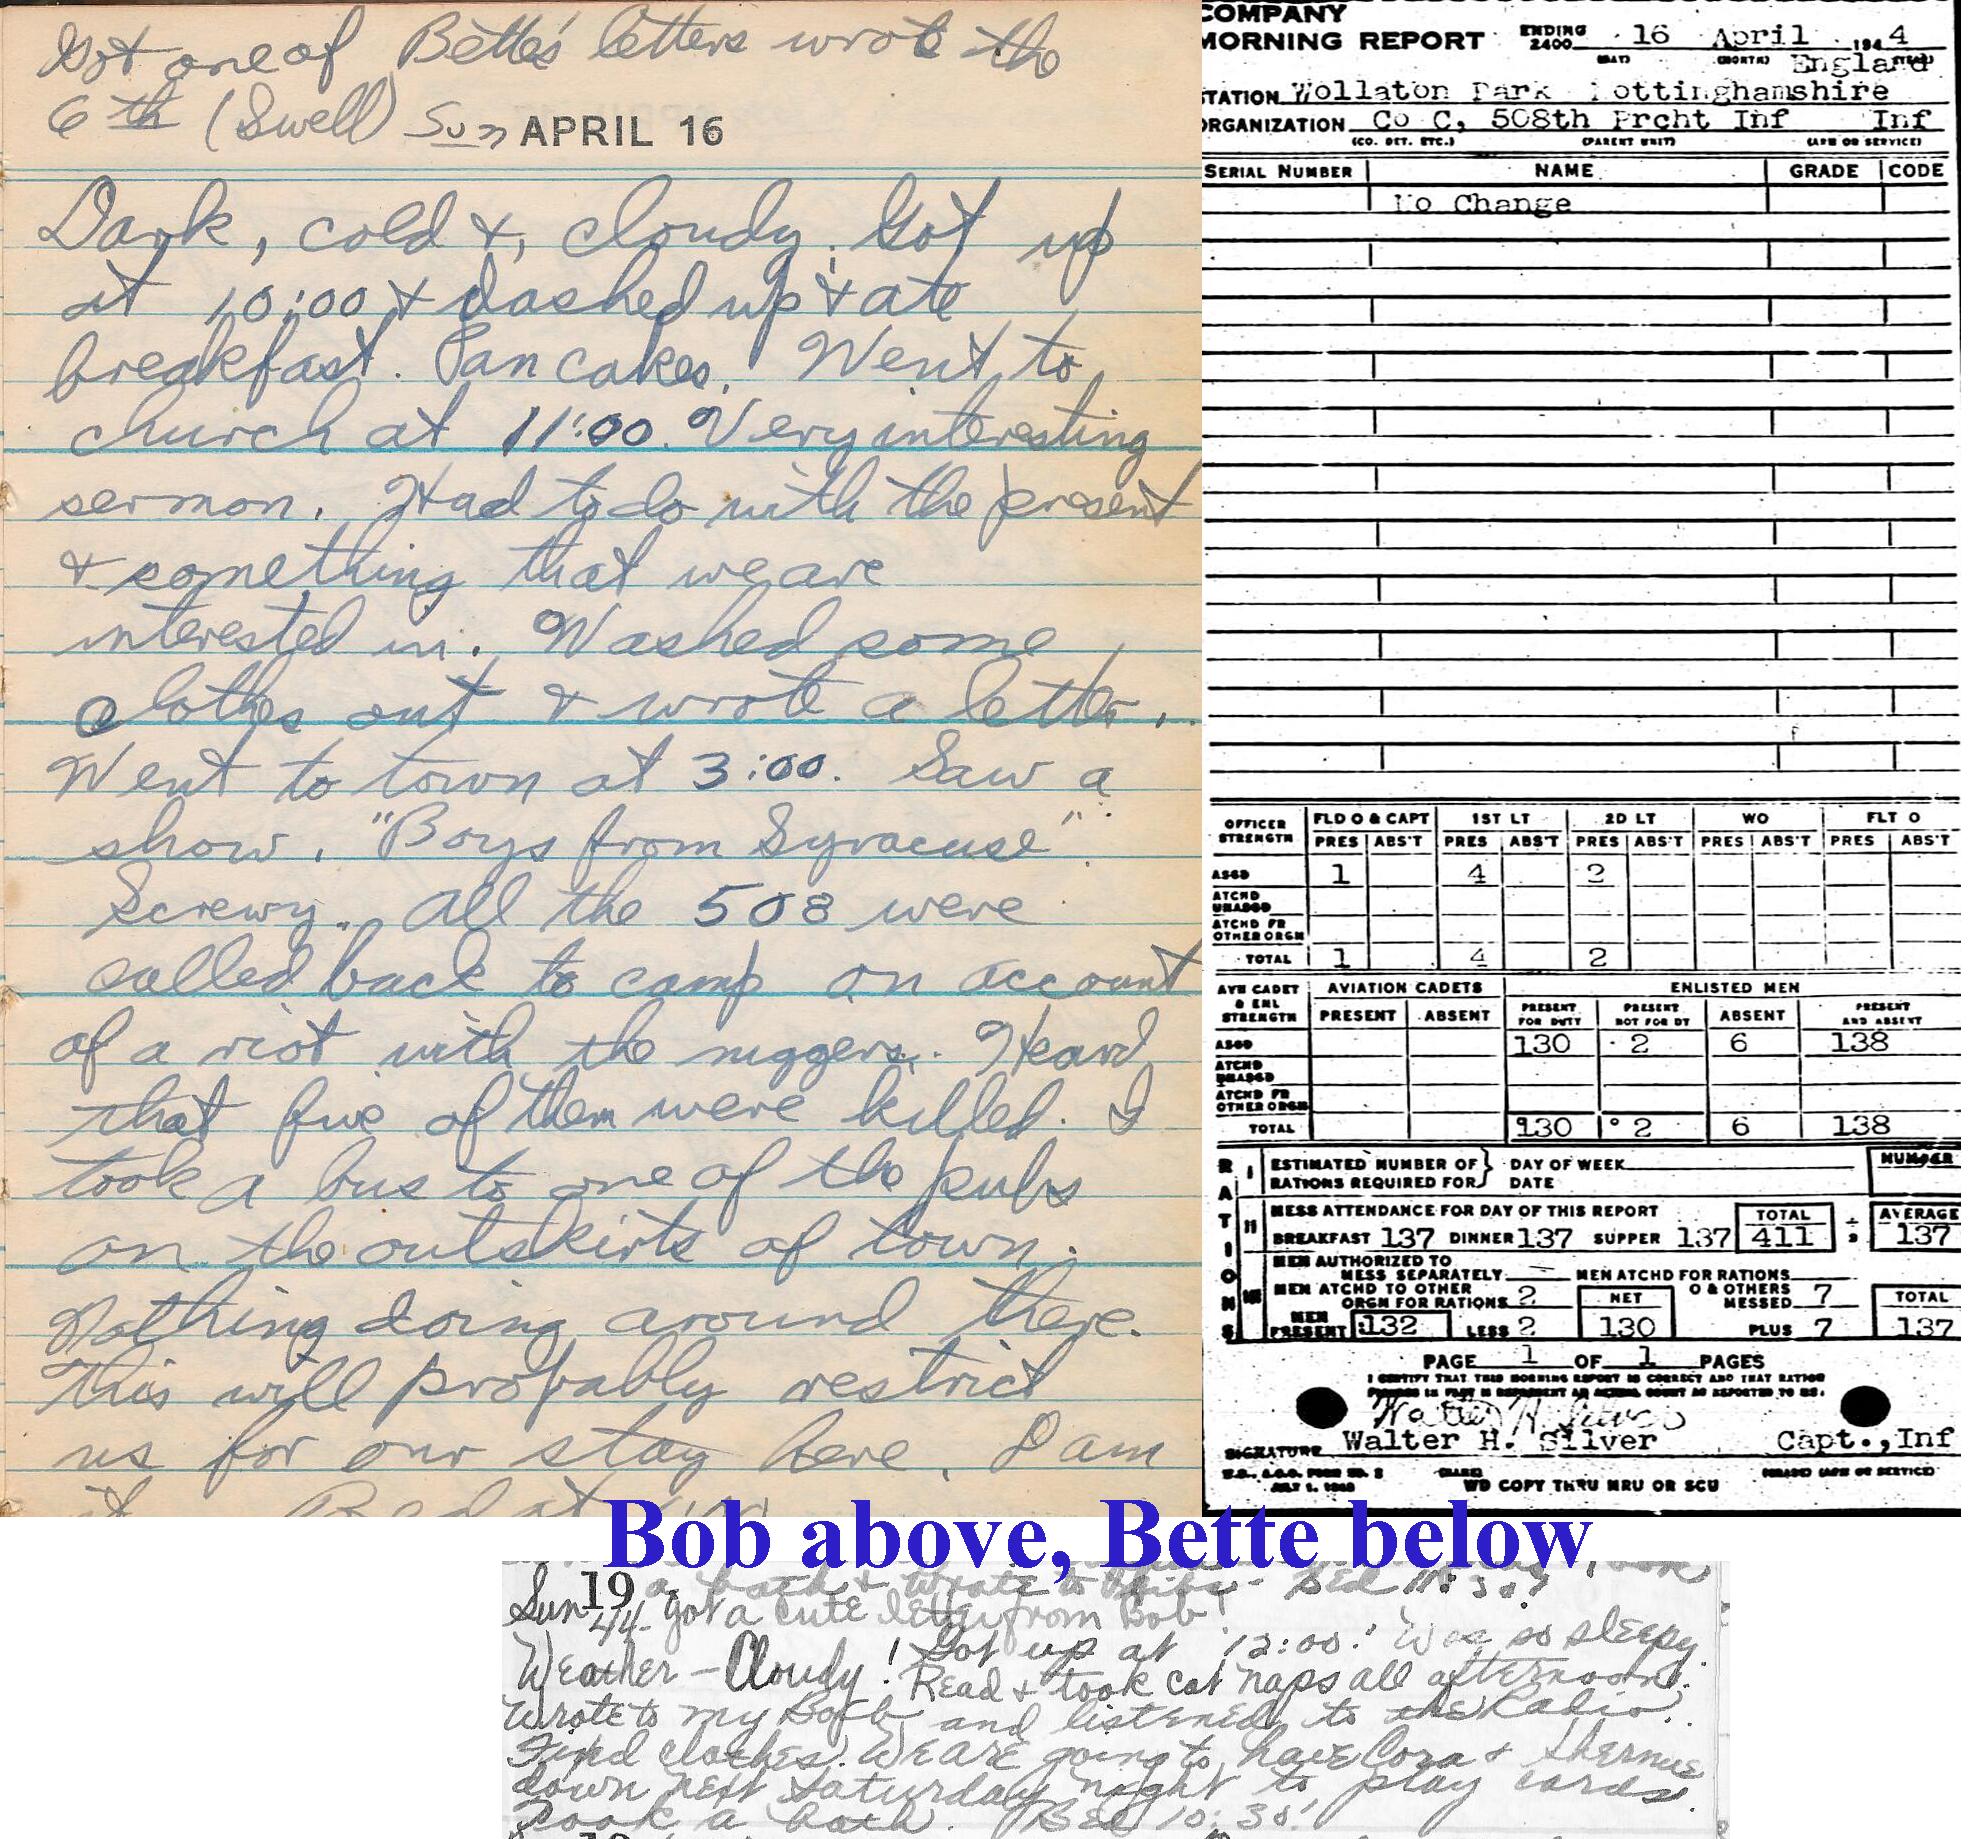 Got one of Bette's letters wrote the
6th (Swell) Sun APRIL 16
Dark, cold &, cloudy. Got up
at 10:00 & dashed up & ate
breakfast. Pancakes. Went to
church at 11:00. Very interesting
sermon. Had to do with the present
& something that we are
interested in. Washed some
clothes out & wrote a letter.
Went to town at 3:00. Saw a
show. "Boys from Syracuse"
Screwy. All the 508 were
called back to camp on account
of a riot with the niggers. Heard
that five of them were killed. I
took a bus to one of the pubs
on the outskirts of town.
Nothing doing around there.
This will probably restrict
us for our stay here. I am
it. Bed at
COMPANY
MORNING REPORT ENDING 2400 16 April 1944
(DAY) (MONTH) (YEAR)
England
STATION Wollaton Park Nottinghamshire
ORGANIZATION Co C, 508th Prcht Inf Inf
(CO. DET. ETC.) (PARENT UNIT) (ARM OR SERVICE)
SERIAL NUMBER NAME GRADE CODE
No Change
OFFICER STRENGTH FLD O & CAPT 1ST LT 2D LT WO FLT O
PRES ABS'T PRES ABS'T PRES ABS'T PRES ABS'T PRES ABS'T
ASGD 1 4 2
ATCHD UNASGD
ATCHD FR OTHER ORGN
TOTAL 1 4 2
AVN CADET & ENL STRENGTH AVIATION CADETS ENLISTED MEN
PRESENT ABSENT PRESENT FOR DUTY PRESENT NOT FOR DY ABSENT PRESENT AND ABSENT
ASGD 130 2 6 138
ATCHD UNASGD
ATCHD FR OTHER ORGN
TOTAL 130 2 6 138
RATIONS
I ESTIMATED NUMBER OF RATIONS REQUIRED FOR DAY OF WEEK DATE NUMBER
II MESS ATTENDANCE FOR DAY OF THIS REPORT TOTAL AVERAGE
BREAKFAST 137 DINNER 137 SUPPER 137 411 ÷ 3 137
III MEN AUTHORIZED TO MESS SEPARATELY MEN ATCHD FOR RATIONS & OTHERS MESSED 7
MEN ATCHD TO OTHER ORGN FOR RATIONS 2 NET TOTAL
MEN PRESENT 132 LESS 2 130 PLUS 7 137
PAGE 1 OF 1 PAGES
I CERTIFY THAT THIS MORNING REPORT IS CORRECT AND THAT RATION
Walter H. Silver
SIGNATURE Walter H. Silver Capt., Inf
WD COPY THRU MRU OR SCU
Bob above, Bette below
a bath & wrote to Bed 11:30!
Sun 19 44- got a cute letter from Bob!
Weather - Cloudy! Got up at 12:00! Was so sleepy.
Read & took cat naps all afternoon.
Wrote to my Bob and listened to the Radio.
Fixed clothes. We are going to have Cora & Shermie
down next Saturday night to play cards.
Took a bath. Bed 10:30!